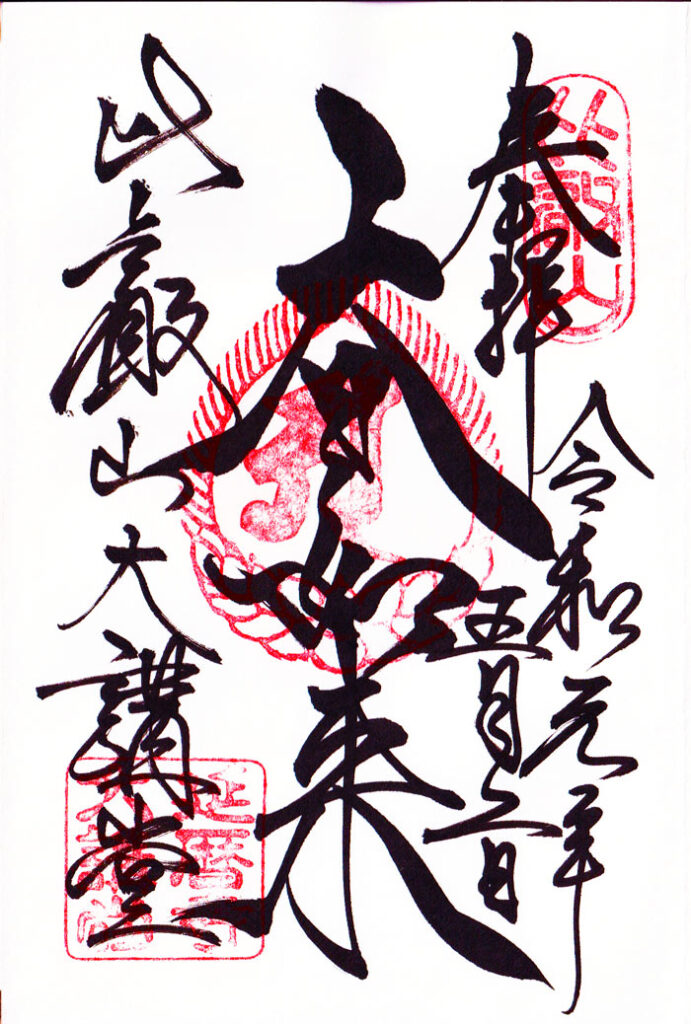 奉拝
令和元年
五月二日
大日如来
比叡山大講堂
比叡山
延暦寺